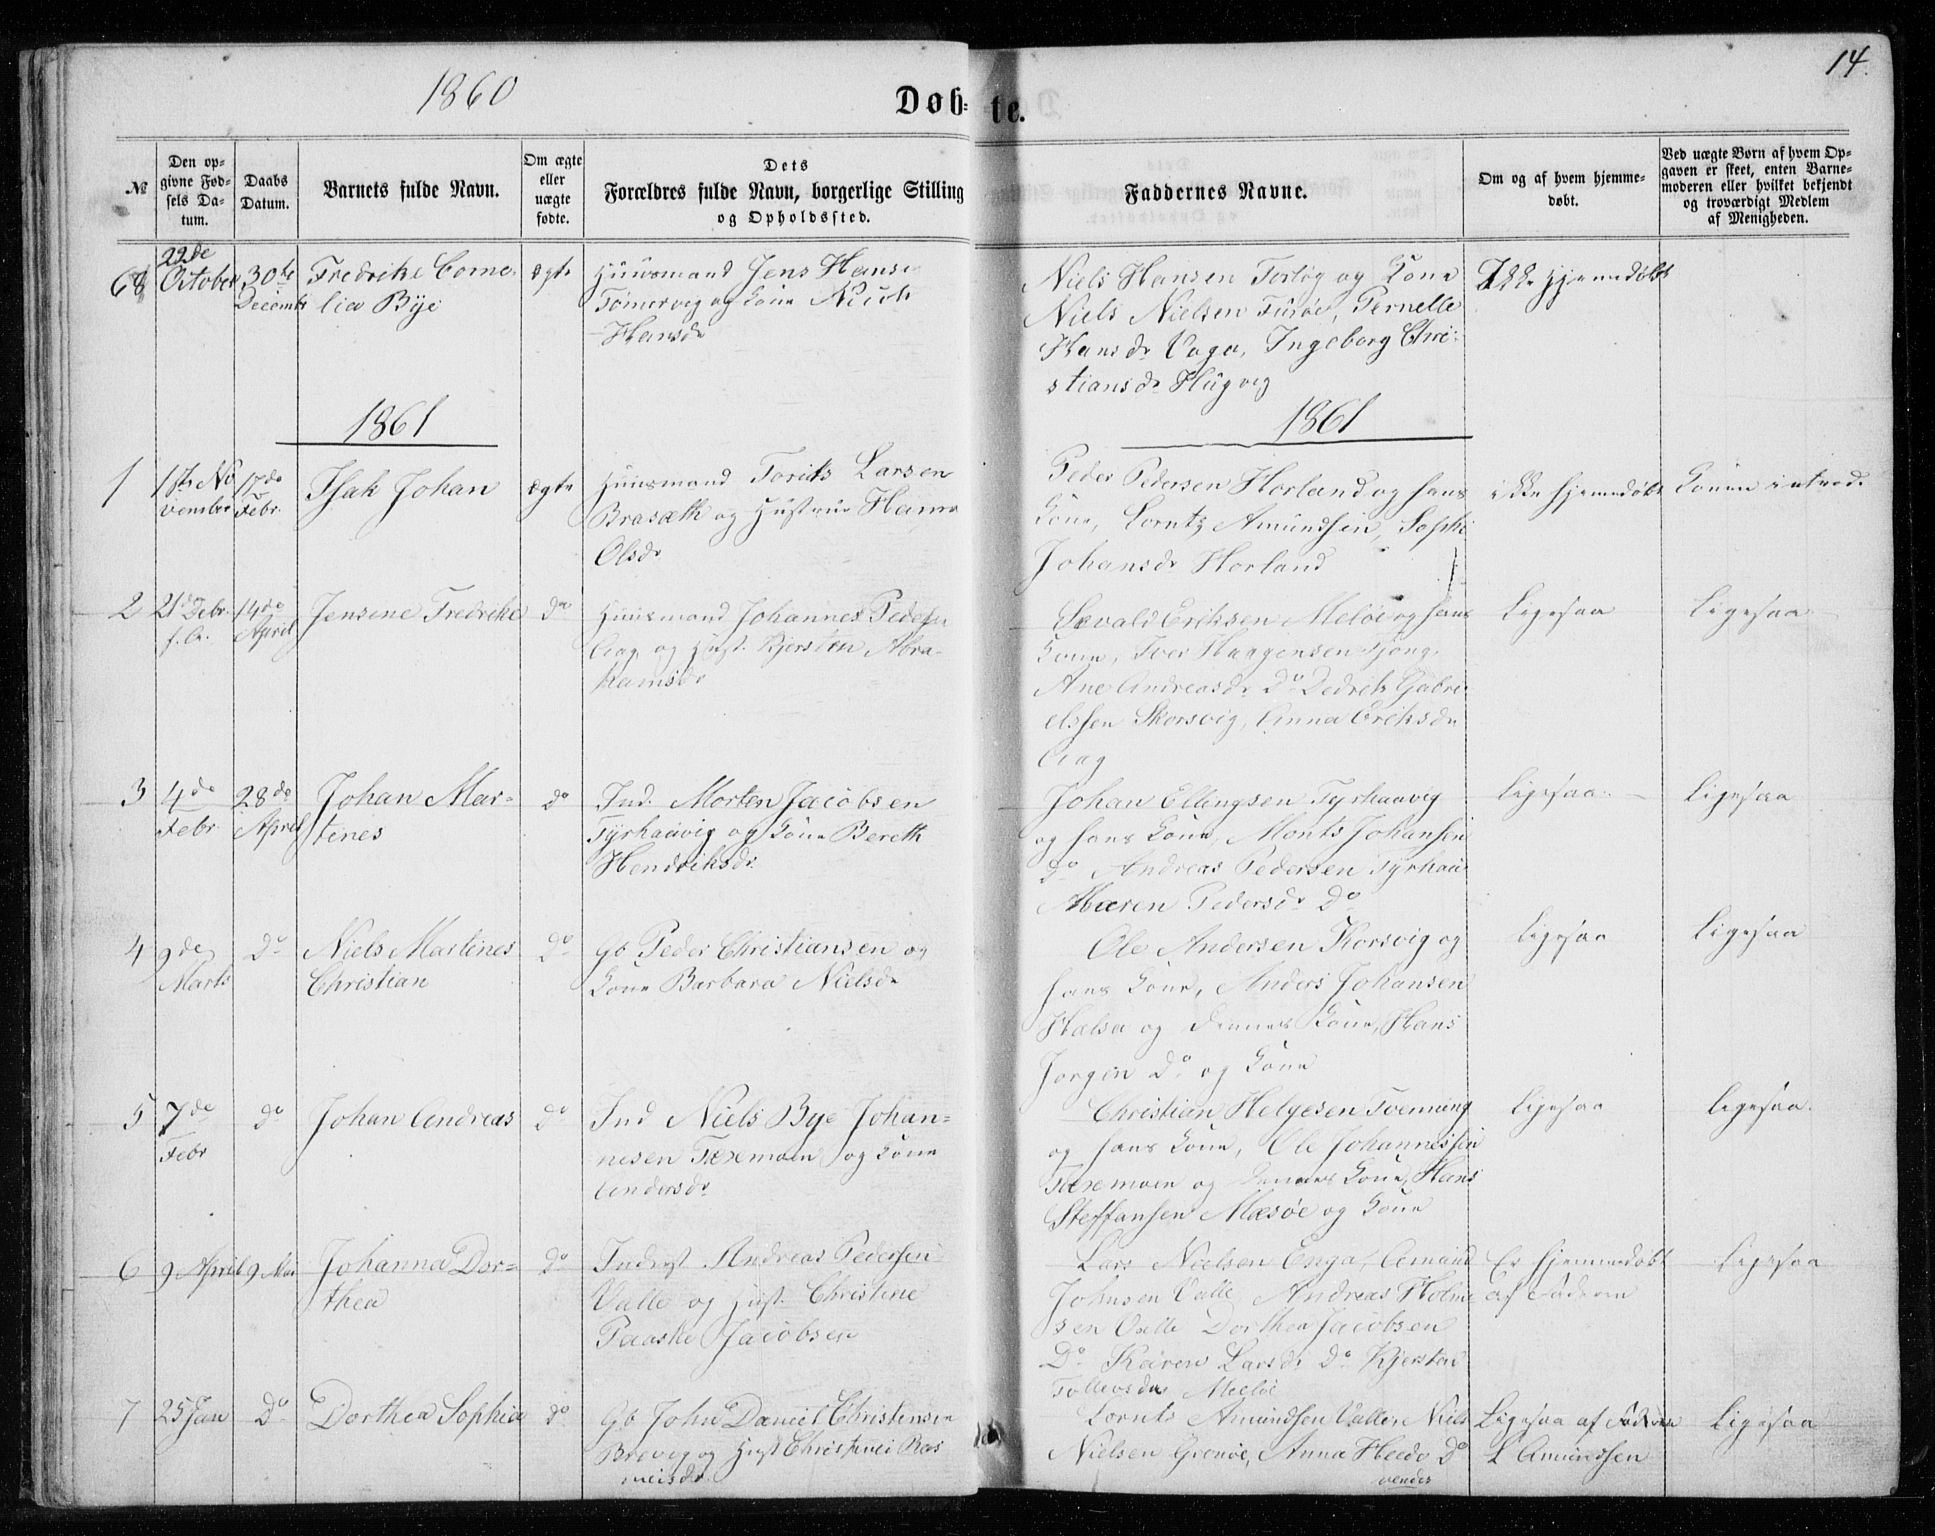 1860
Døb-
te.
14.
№
Den op-
givne Fød-
sels Da-
tum.
Daabs
Datum.
Barnets fulde Navn.
Om ægte
eller
uægte
fødte.
Dets
Forældres fulde Navn, borgerlige Stilling
og Opholdssted.
Faddernes Navne.
Om og af hvem hjemme-
døbt.
Ved uægte Børn af hvem Op-
gaven er skeet, enten Barne-
moderen eller hvilket bekjendt
og troværdigt Medlem
af Menigheden.
68
22de
October
30te
Decembr
Fredrike Corne-
lia Bye
ægte
Huusmand Jens Hans
og Kone
Hansdr
Niels Hansen og Kone
Niels Nielsen Furøe, Pernelle
Hansdr Vaga, Ingeborg Chri-
stiansdr Flugvig
Ikke Hjemmedøbt
1861
1861
1
No
vember
17de
Febr.
Isak Johan
ægte
Huusmand Larsen
Brasæth og Hustrue Hanna
Olsdr
Peder Pedersen Horland og hans
Kone, Lorntz Amundsen, Sophi
Johansdr Horland
ikke hjemmedøbt
Konen introd.
2
21de Febr.
14de
April
Jensine Fredrike
do
Huusmand Johannes Peders
Aag og Hust. Kjersten Abra-
hamsdr
Sevald Eriksen Meløe og hans
Kone, Iver Haagensen Tjong,
Ane Andreasdr Do Dedrik Gabri-
elssen Skorsvig, Anna Eriksdr
Aag
Ligesaa
Ligesaa
3
4de
Febr
28de
April
Johan Mar-
tines
do
Ind. Morten Jacobsen
Tyrhaavig og Kone Bereth
Hendriksdr
Johan Ellingsen Tyrhaavig
og hans Kone, Monts Johansen
do Andreas Pedersen Tyrhau
Maren Pedersdr Do
Ligesaa
Ligesaa
4
9de
Marts
Do
Niels Martines
Christian
Do
Gb Peder Christiansen og
Kone Barbara Nielsdr
Ole Andersen Korsvig og
hans Kone, Anders Johansen
Halsa og dennes Kone, Hans
Jørgen Do og Kone
Ligesaa
Ligesaa
5
7de
Febr
do
Johan Andreas
do
Ind Niels Bye Johan-
nesen Træmoen og Kone
Andersdr
Christian Helgesen
og hans Kone, Ole Johannessen
Træmoen og dennes Kone, Hans
Steffansen Mesøe og Kone
Ligesaa
Ligesaa.
6
9 April
9 Mai
Johanna Dor-
thea
do
Andreas Pedersen
Valle og Hust. Christine
Paaske Jacobsen
Lars Nielsen Enga, Amund
Johnsen Valle, Andreas Holm-
sen Valle Dorthea Jacobsen
Do Karen Larsdr do Kjersten
Tollevsdr Meløe
Er hjemmedøbt
af Faderen
Ligesaa
7
25 Jan
Do
Dorthea Sophia
do
Gb John Daniel Christensen
Brevig og Hust Christine Ras
musdr
Lornts Amundsen Valle, Niels
Nielsen Grønøe, Anna Do
Ligesaa af Faderen
L Amundsen
Ligesaa